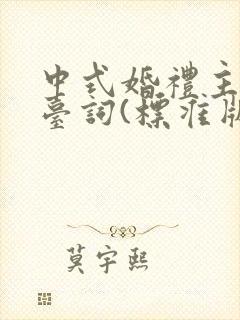 中式婚禮主
臺詞(標准版
莫宇熙